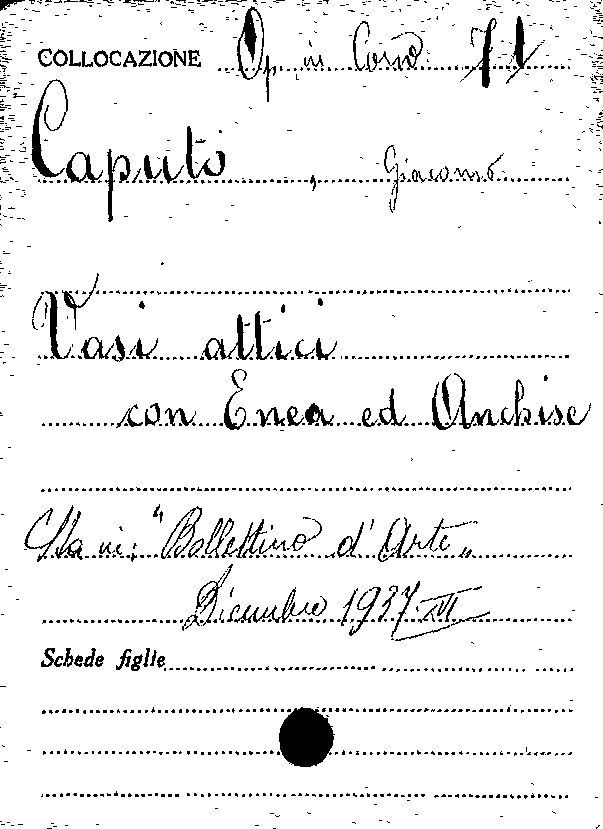 COLLOCAZIONE Op. in Corso 71
Caputo, Giacomo
Vasi attici
con Enea ed Anchise
Sta in: "Bollettino d'Arte„
Dicembre 1937-XVI
Schede figlie